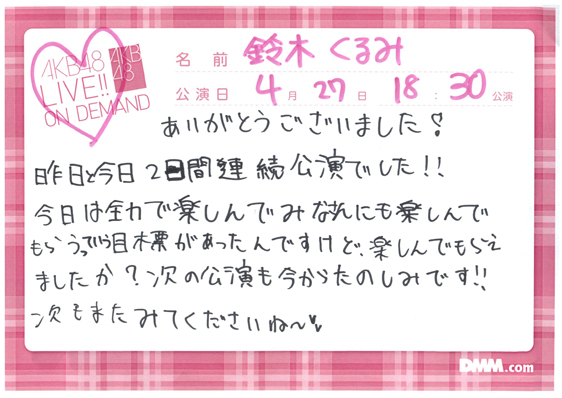 AKB48
LIVE!!
ON DEMAND
AKB
48
名前 鈴木くるみ
公演日 4月27日 18:30公演
ありがとうございました!
昨日と今日2日間連続公演でした!!
今日は全力で楽しんでみなさんにも楽しんで
もらうっていう目標があったんですけど、楽しんでもらえ
ましたか?次の公演も今からたのしみです!!
次もまたみてくださいね〜♥
DMM.com